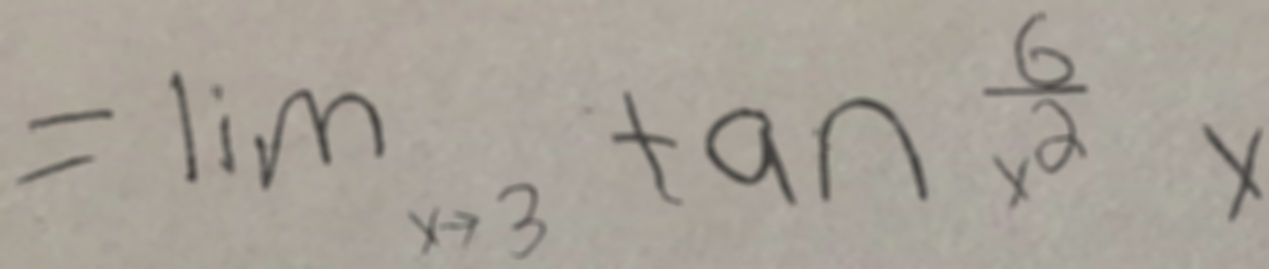 = lim_{x→3} tan^{\frac{6}{x^2}} x